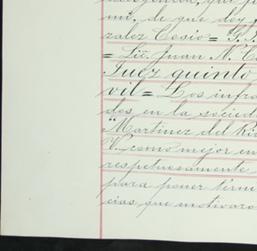 mí, de que doy
zalez Cosio = P. J.
= Lic. Juan N.
Juez quinto
vil = Los infra
dos en la socied
"Martinez del Rio
V. como mejor en
respetuosamente
para poner térm
cias que motivaro